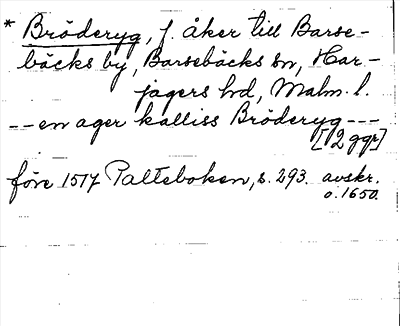 * Bröderyg, f. åker till Barse-
bäcks by, Barsebäcks sn, Har-
jagers hd, Malm. l.
-- en ager kalliss Bröderyg ---
[2 ggr]
före 1517 Palteboken, s. 293. avskr.
o. 1650.